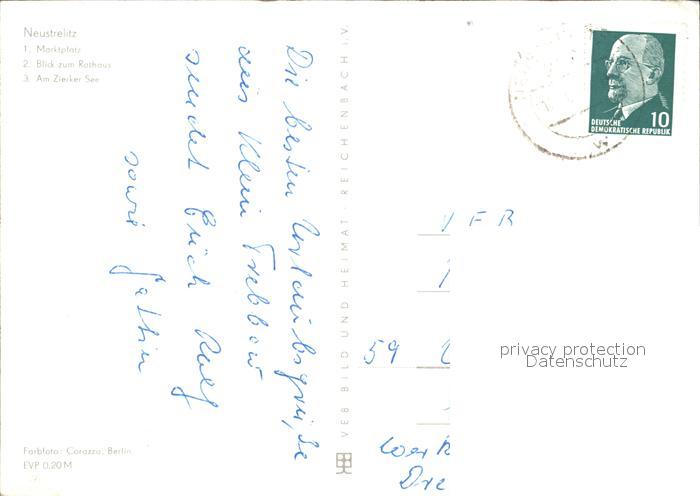 Neustrelitz
1. Marktplatz
2. Blick zum Rathaus
3. Am Zierker See
Die besten Urlaubsgrüße
aus Klein Trebbow
sendet Euch Ralf
sowie Gattin
Farbfoto: Corazza, Berlin
EVP 0,20 M
VEB BILD UND HEIMAT · REICHENBACH i. V.
10
DEUTSCHE
DEMOKRATISCHE REPUBLIK
VEB
59
privacy protection
Datenschutz